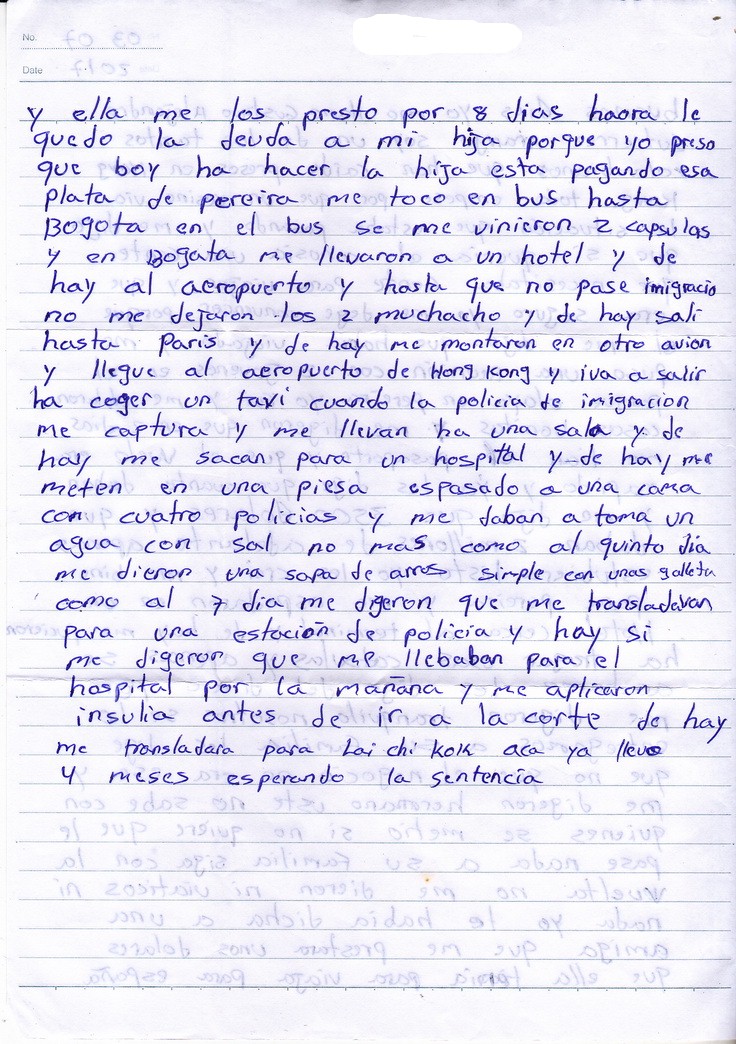 No.
Date
y ella me los presto por 8 dias haora le
quedo la deuda a mi hija porque yo preso
que boy ha hacer la hija esta pagando esa
plata de pereira me toco en bus hasta
Bogota en el bus se me vinieron 2 capsulas
y en Bogata me llevaron a un hotel y de
hay al aeropuerto y hasta que no pase imigracio
no me dejaron los 2 muchacho y de hay sali
hasta Paris y de hay me montaron en otro avion
y llegue al aeropuerto de Hong Kong y iva a salir
ha coger un taxi cuando la policia de imigracion
me captura y me llevan ha una sala y de
hay me sacan para un hospital y de hay me
meten en una piesa espasado a una cama
con cuatro policias y me daban a toma un
agua con sal no mas como al quinto dia
me dieron una sopa de arros simple con unas galleta
como al 7 dia me digeron que me transladavan
para una estación de policia y hay si
me digeron que me llebaban para el
hospital por la mañana y me aplicaron
insulia antes de ir a la corte de hay
me transladara para Lai chi kok aca ya llevo
4 meses esperando la sentencia